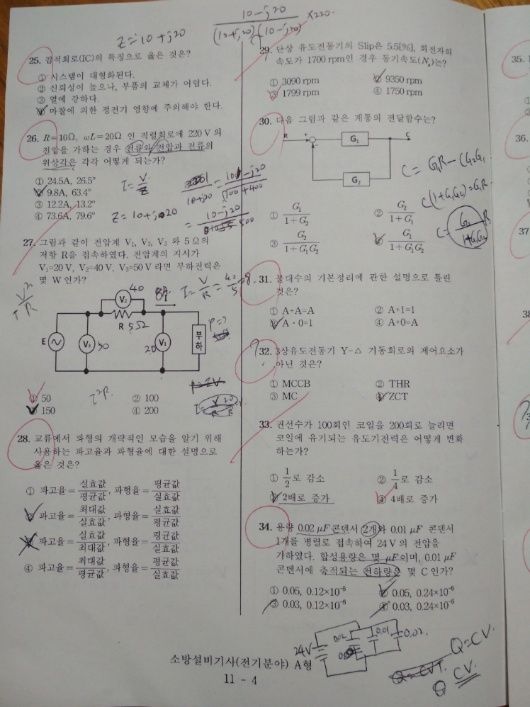 25. 집적회로(IC)의 특징으로 옳은 것은?
① 시스템이 대형화된다.
② 신뢰성이 높으나, 부품의 교체가 어렵다.
③ 열에 강하다.
④ 마찰에 의한 정전기 영향에 주의해야 한다.
26. R=10Ω, ωL=20Ω 인 직렬회로에 220 V의
전압을 가하는 경우 전류와 전압과 전류의
위상각은 각각 어떻게 되는가?
① 24.5A, 26.5°
② 9.8A, 63.4°
③ 12.2A, 13.2°
④ 73.6A, 79.6°
27. 그림과 같이 전압계 V₁, V₂, V₃ 와 5 Ω의
저항 R을 접속하였다. 전압계의 지시가
V₁=20 V, V₂=40 V, V₃=50 V 라면 부하전력은
몇 W인가?
V₂
R 5Ω
E
V₃
V₁
부하
① 50
② 100
③ 150
④ 200
28. 교류에서 파형의 개략적인 모습을 알기 위해
사용하는 파고율과 파형율에 대한 설명으로
옳은 것은?
① 파고율= 실효값/평균값, 파형율= 평균값/실효값
② 파고율= 최대값/실효값, 파형율= 실효값/평균값
③ 파고율= 실효값/최대값, 파형율= 평균값/실효값
④ 파고율= 최대값/평균값, 파형율= 평균값/실효값
29. 단상 유도전동기의 Slip은 5.5[%], 회전자의
속도가 1700 rpm인 경우 동기속도(Nₛ)는?
① 3090 rpm
② 9350 rpm
③ 1799 rpm
④ 1750 rpm
30. 다음 그림과 같은 계통의 전달함수는?
R
G₁
C
G₂
① G₁/1+G₂
② G₂/1+G₁
③ G₂/1+G₁G₂
④ G₁/1+G₁G₂
31. 불대수의 기본정리에 관한 설명으로 틀린
것은?
① A+A=A
② A+1=1
③ A·0=1
④ A+0=A
32. 3상유도전동기 Y-△ 기동회로의 제어요소가
아닌 것은?
① MCCB
② THR
③ MC
④ ZCT
33. 권선수가 100회인 코일을 200회로 늘리면
코일에 유기되는 유도기전력은 어떻게 변화
하는가?
① 1/2로 감소
② 1/4로 감소
③ 2배로 증가
④ 4배로 증가
34. 용량 0.02 μF 콘덴서 2개와 0.01 μF 콘덴서
1개를 병렬로 접속하여 24 V의 전압을
가하였다. 합성용량은 몇 μF이며, 0.01 μF
콘덴서에 축적되는 전하량은 몇 C인가?
① 0.05, 0.12×10⁻⁶
② 0.05, 0.24×10⁻⁶
③ 0.03, 0.12×10⁻⁶
④ 0.03, 0.24×10⁻⁶
소방설비기사(전기분야) A형
11 - 4
35.
36.
Z=10+j20
Q=CV
24V